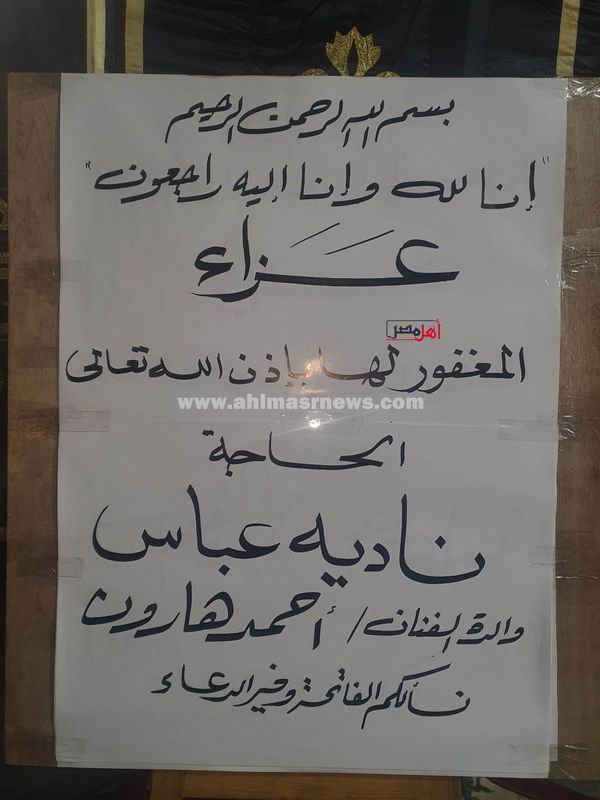 بسم الله الرحمن الرحيم
"إنا لله وإنا إليه راجعون"
عزاء
أهل مصر
المغفور لها بإذن الله تعالى
www.ahlmasrnews.com
الحاجة
ناديه عباس
والدة الفنان / أحمد هارون
نسألكم الفاتحة وخير الدعاء